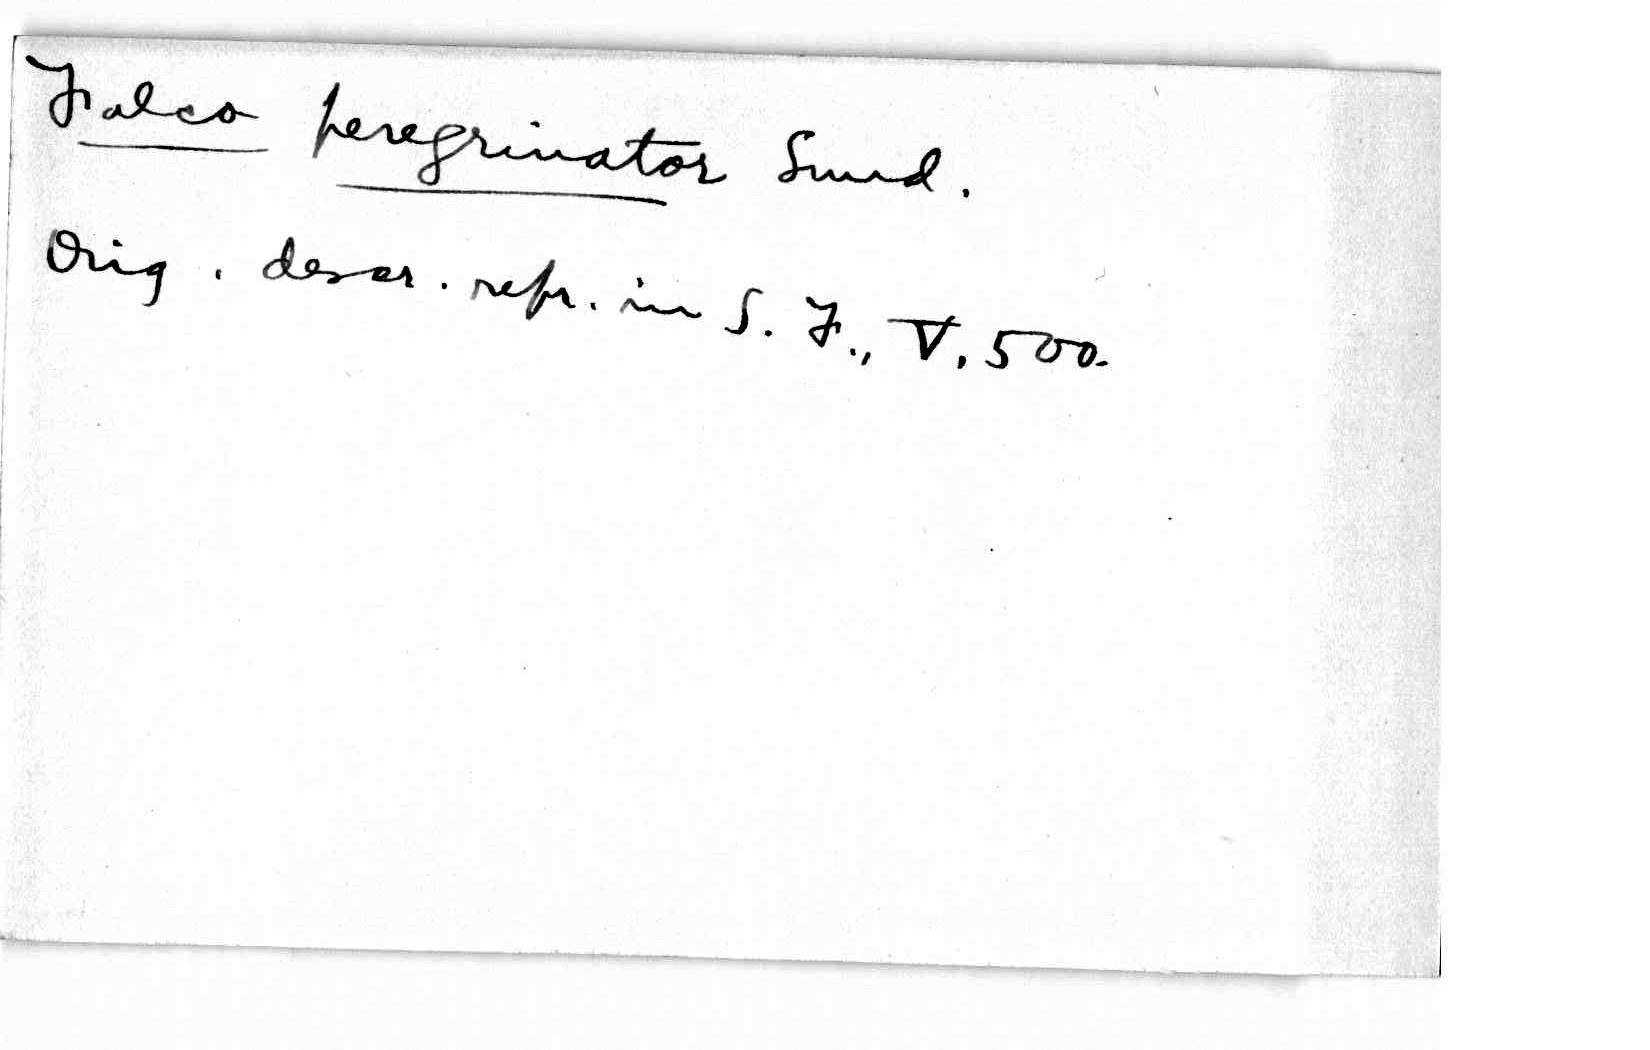 Falco peregrinator Sund.
Orig. descr. repr. in S. F., V, 500.